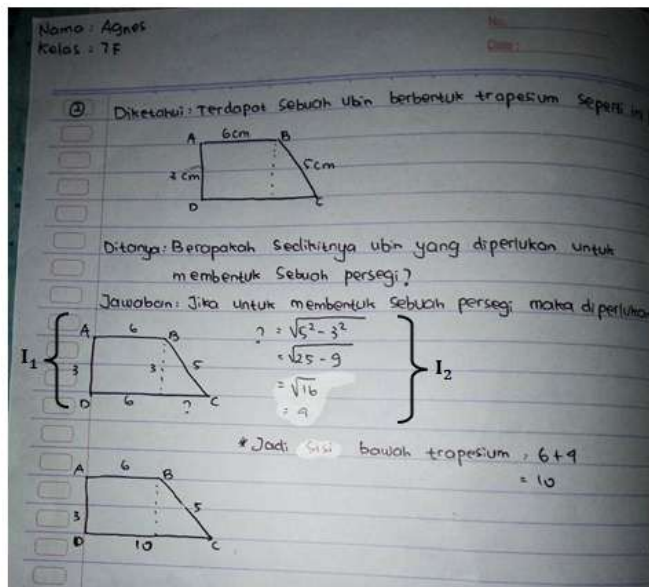 Nama : Agnes
Kelas : 7F
No.
Date :
② Diketahui : Terdapat sebuah ubin berbentuk trapesium seperti in
A 6cm B
3 cm 5cm
D C
Ditanya : Berapakah sedikitnya ubin yang diperlukan untuk
membentuk sebuah persegi?
Jawaban : Jika untuk membentuk sebuah persegi maka diperlukan
A 6 B
I₁ 3 3 5
D 6 ? C
? = √5² - 3²
= √25 - 9
= √16
= 4
I₂
* Jadi sisi bawah trapesium , 6+4
= 10
A 6 B
3 5
D 10 C